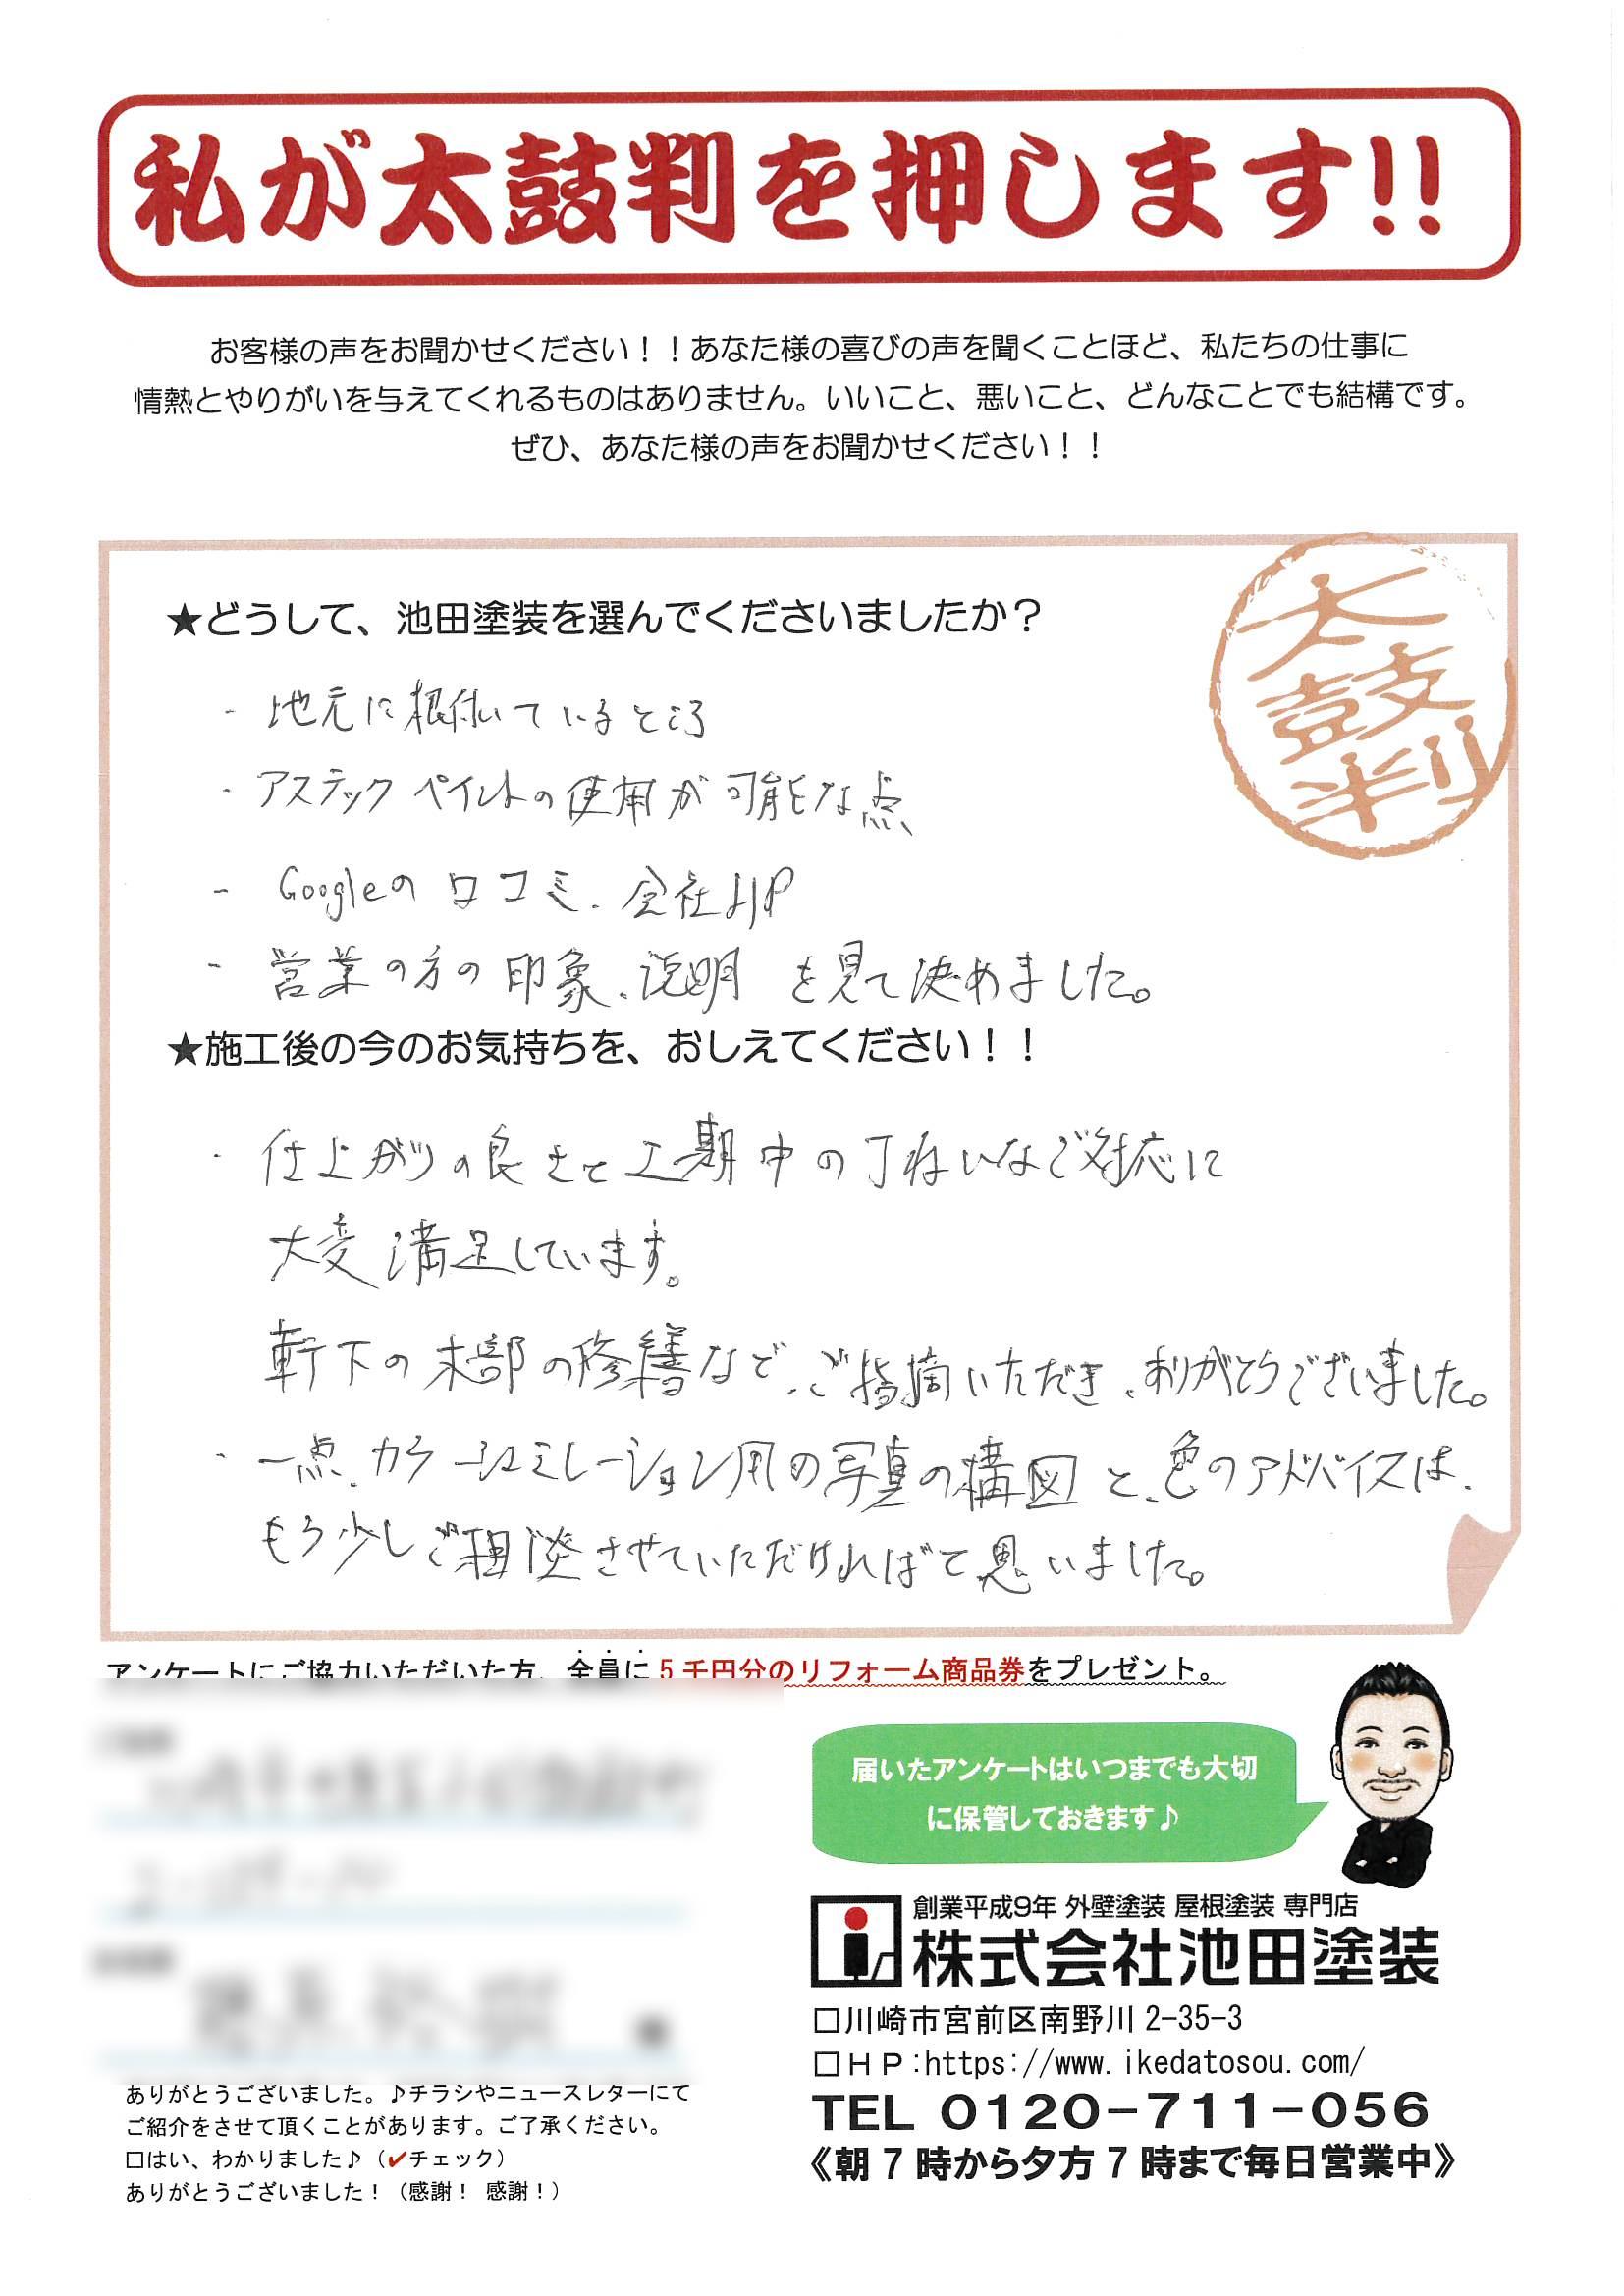 私が太鼓判を押します!!
お客様の声をお聞かせください！！あなた様の喜びの声を聞くことほど、私たちの仕事に
情熱とやりがいを与えてくれるものはありません。いいこと、悪いこと、どんなことでも結構です。
ぜひ、あなた様の声をお聞かせください！！
太鼓判
★どうして、池田塗装を選んでくださいましたか？
- 地元に根付いているところ
- アステックペイントの使用が可能な点、
- Googleの口コミ、会社HP
- 営業の方の印象、説明 を見て決めました。
★施工後の今のお気持ちを、おしえてください！！
・仕上がりの良さと工期中の丁ねいなご対応に
大変満足しています。
軒下の木部の修繕など、ご指摘いただき、ありがとうございました。
・一点、カラーシュミレーション用の写真の構図と、色のアドバイスは、
もう少しご相談させていただければと思いました。
アンケートにご協力いただいた方、全員に５千円分のリフォーム商品券をプレゼント。
届いたアンケートはいつまでも大切
に保管しておきます♪
創業平成9年 外壁塗装 屋根塗装 専門店
株式会社池田塗装
□川崎市宮前区南野川 2-35-3
□ＨＰ:https://www.ikedatosou.com/
TEL 0120-711-056
《朝７時から夕方７時まで毎日営業中》
ありがとうございました。♪チラシやニュースレターにて
ご紹介をさせて頂くことがあります。ご了承ください。
□はい、わかりました♪（✔チェック）
ありがとうございました！（感謝！ 感謝！）